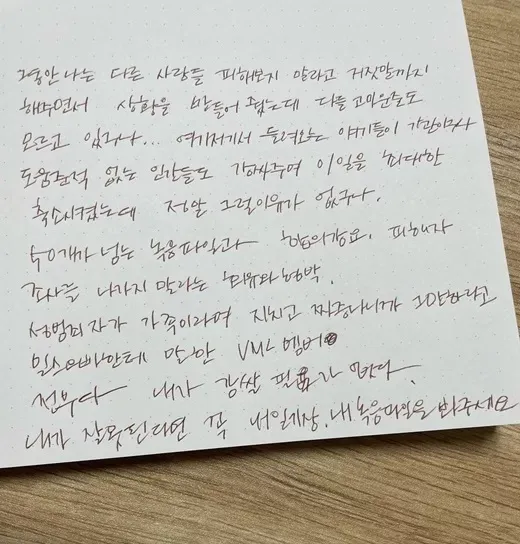 그동안 나는 다른 사람들 피해보지 말라고 거짓말까지
해주면서 상황을 만들어 줬는데 다들 고마운줄도
모르고 있구나... 여기저기서 들려오는 얘기들이 가관이구나
도움준적 없는 인간들도 감싸주며 이일을 최대한
축소시켰는데 정말 그럴이유가 없구나.
50개가 넘는 녹음파일과 합의강요. 피해자
조사를 나가지 말라는 회유와 협박.
성범죄자가 가족이라며 지치고 짜증나니까 그만하라고
일소오빠한테 말한 VML 멤버
전부다 내가 감쌀 필요가 없다.
내가 잘못된다면 꼭 내일기장, 내 녹음파일을 봐주세요